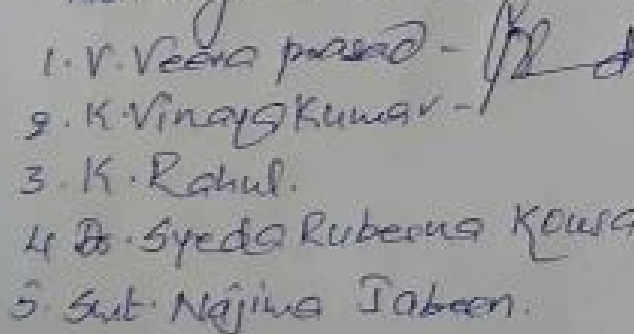 1. V. Veera prasad -
2. K. Vinaya Kumar -
3. K. Rahul.
4 Dr. Syeda Rubeena Kousa
5. Smt. Najima Jabeen.